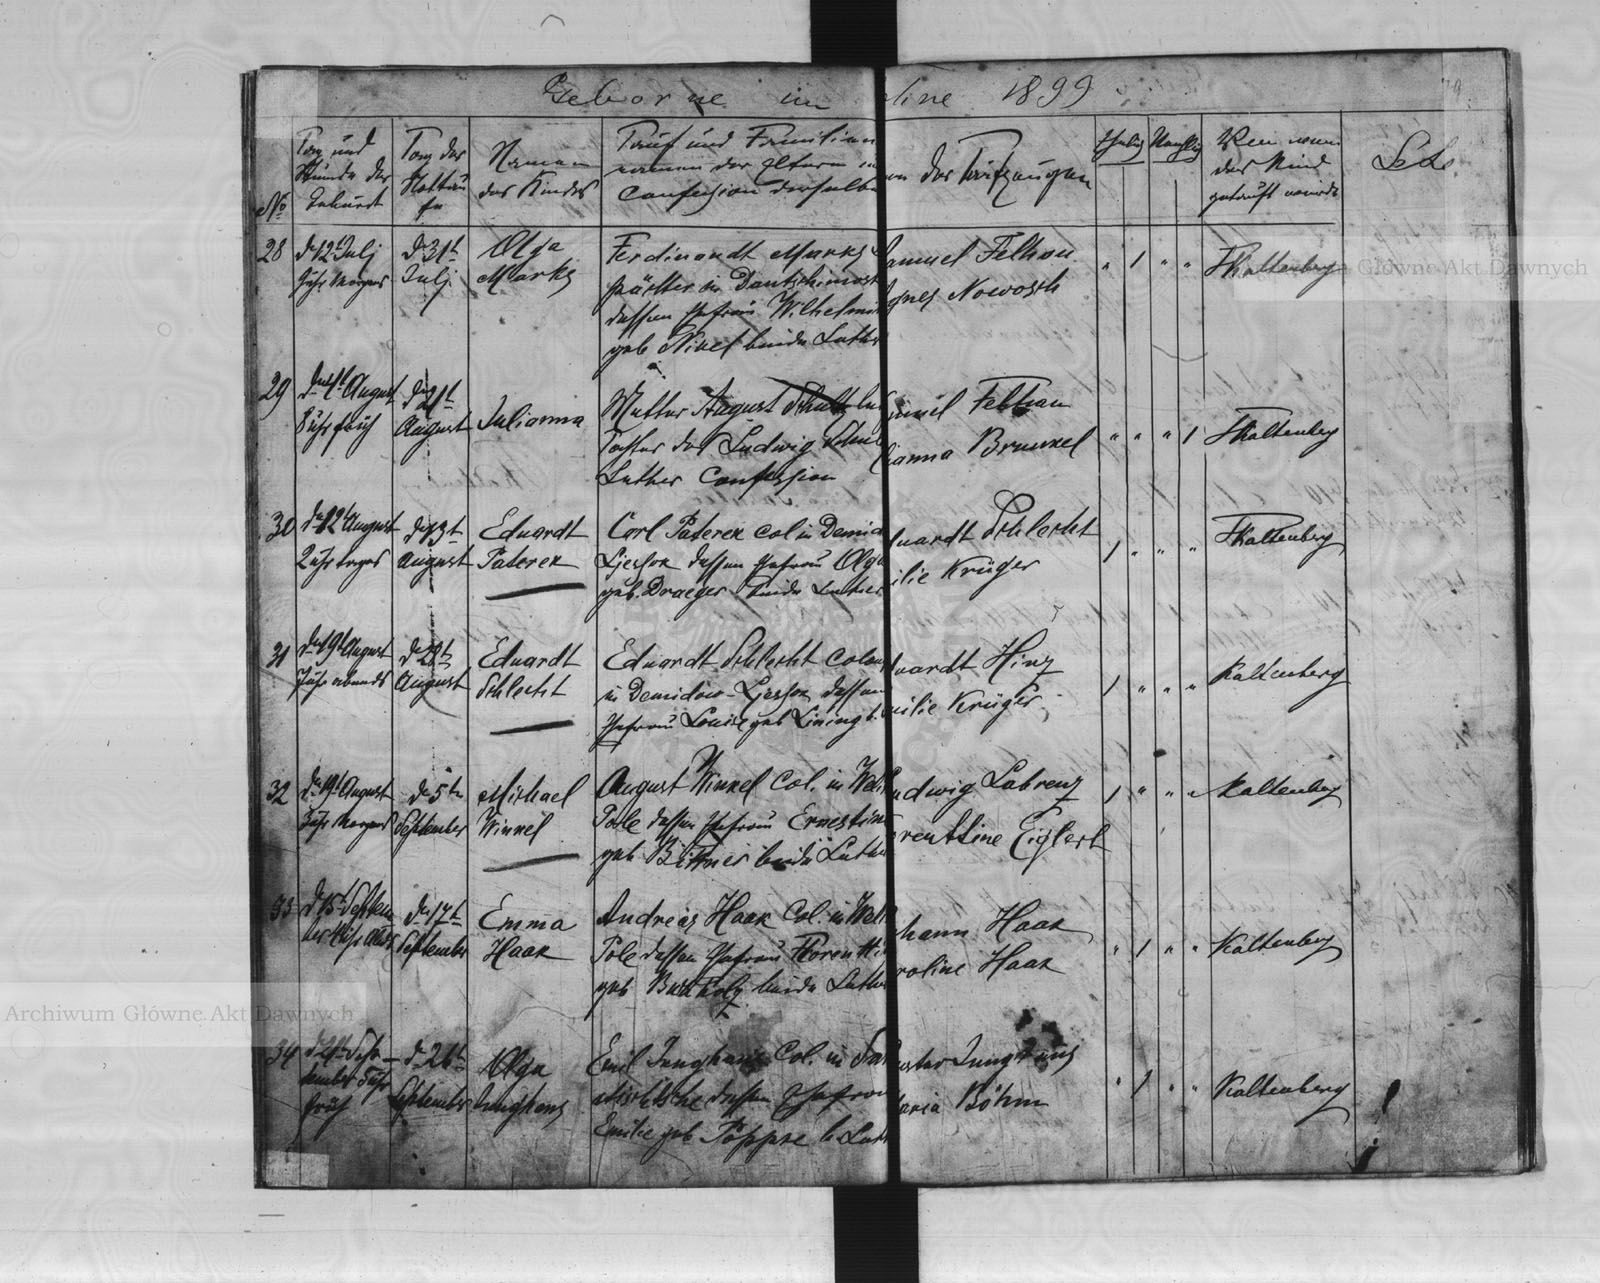 Geborne im line 1899
No
Tag und
Stunde der
Geburt
Tag der
Nottau
fe
Namen
des Kindes
Tauf und Familien
namen der Eltern u
Confession derselbe
en der Taufzeugen
Ehelig Unehlig
Von wem
das Kind
getauft wurde
28
d 12t Julj
Uhr Morgens
d 31t
Julj
Olga
Marks
Ferdinandt Marks
pächter in
dessen Ehefrau Wilhelmi
geb Nikel beide Luther
amuel Felhau
gnes Nowosch
" 1 " "
FKaltenberg
29
den 1t August
8 Uhr früh
d 21t
August
Julianna
Mutter August Schultz
Tochter des Ludwig Schul
Luther Confession
muel Felhau
ianna Brunkel
" " " 1
FKaltenberg
30
d 12t August
2 Uhr
d 13t
August
Eduardt
Paterek
Carl Paterek Col in Demid
Ljessok dessen Ehefrau Olga
geb. Draeger beide Luther
uardt Schlecht
ilie Krüger
1 " " "
FKaltenberg
31
d 19t August
Uhr abends
d 29t
August
Eduardt
Schlecht
Eduardt Schlecht Colon
in Demidow-Ljessok dessen
Ehefrau Louise geb Lining b.
uardt Hinz
milie Krüger
1 " " "
Kaltenberg
32
d 19t August
3 Uhr Morgens
d 5tn
September
Michael
Winkel
August Winkel Col. in Wel
Pole dessen Ehefrau Ernestine
geb Bittner beide Luther
udwig Labrenz
renttine Eiglert
1 " " "
Kaltenberg
33
d 15t Septem
ber Uhr abds
d 17t
September
Emma
Haak
Andreas Haak Col. in Wel
Pole dessen Ehefrau Florentti
geb Buchholz beide Luther
hann Haak
roline Haak
" 1 " "
Kaltenberg
34
d 21t Sep
tember 5 Uhr
früh
d 26t
September
Olga
Junghans
Emil Junghans Col. in
dessen Ehefrau
Emilie geb Pöppke b Luth
Junghans
aria Böhm
" 1 " "
Kaltenberg
Archiwum Główne Akt Dawnych
Główne Akt Dawnych